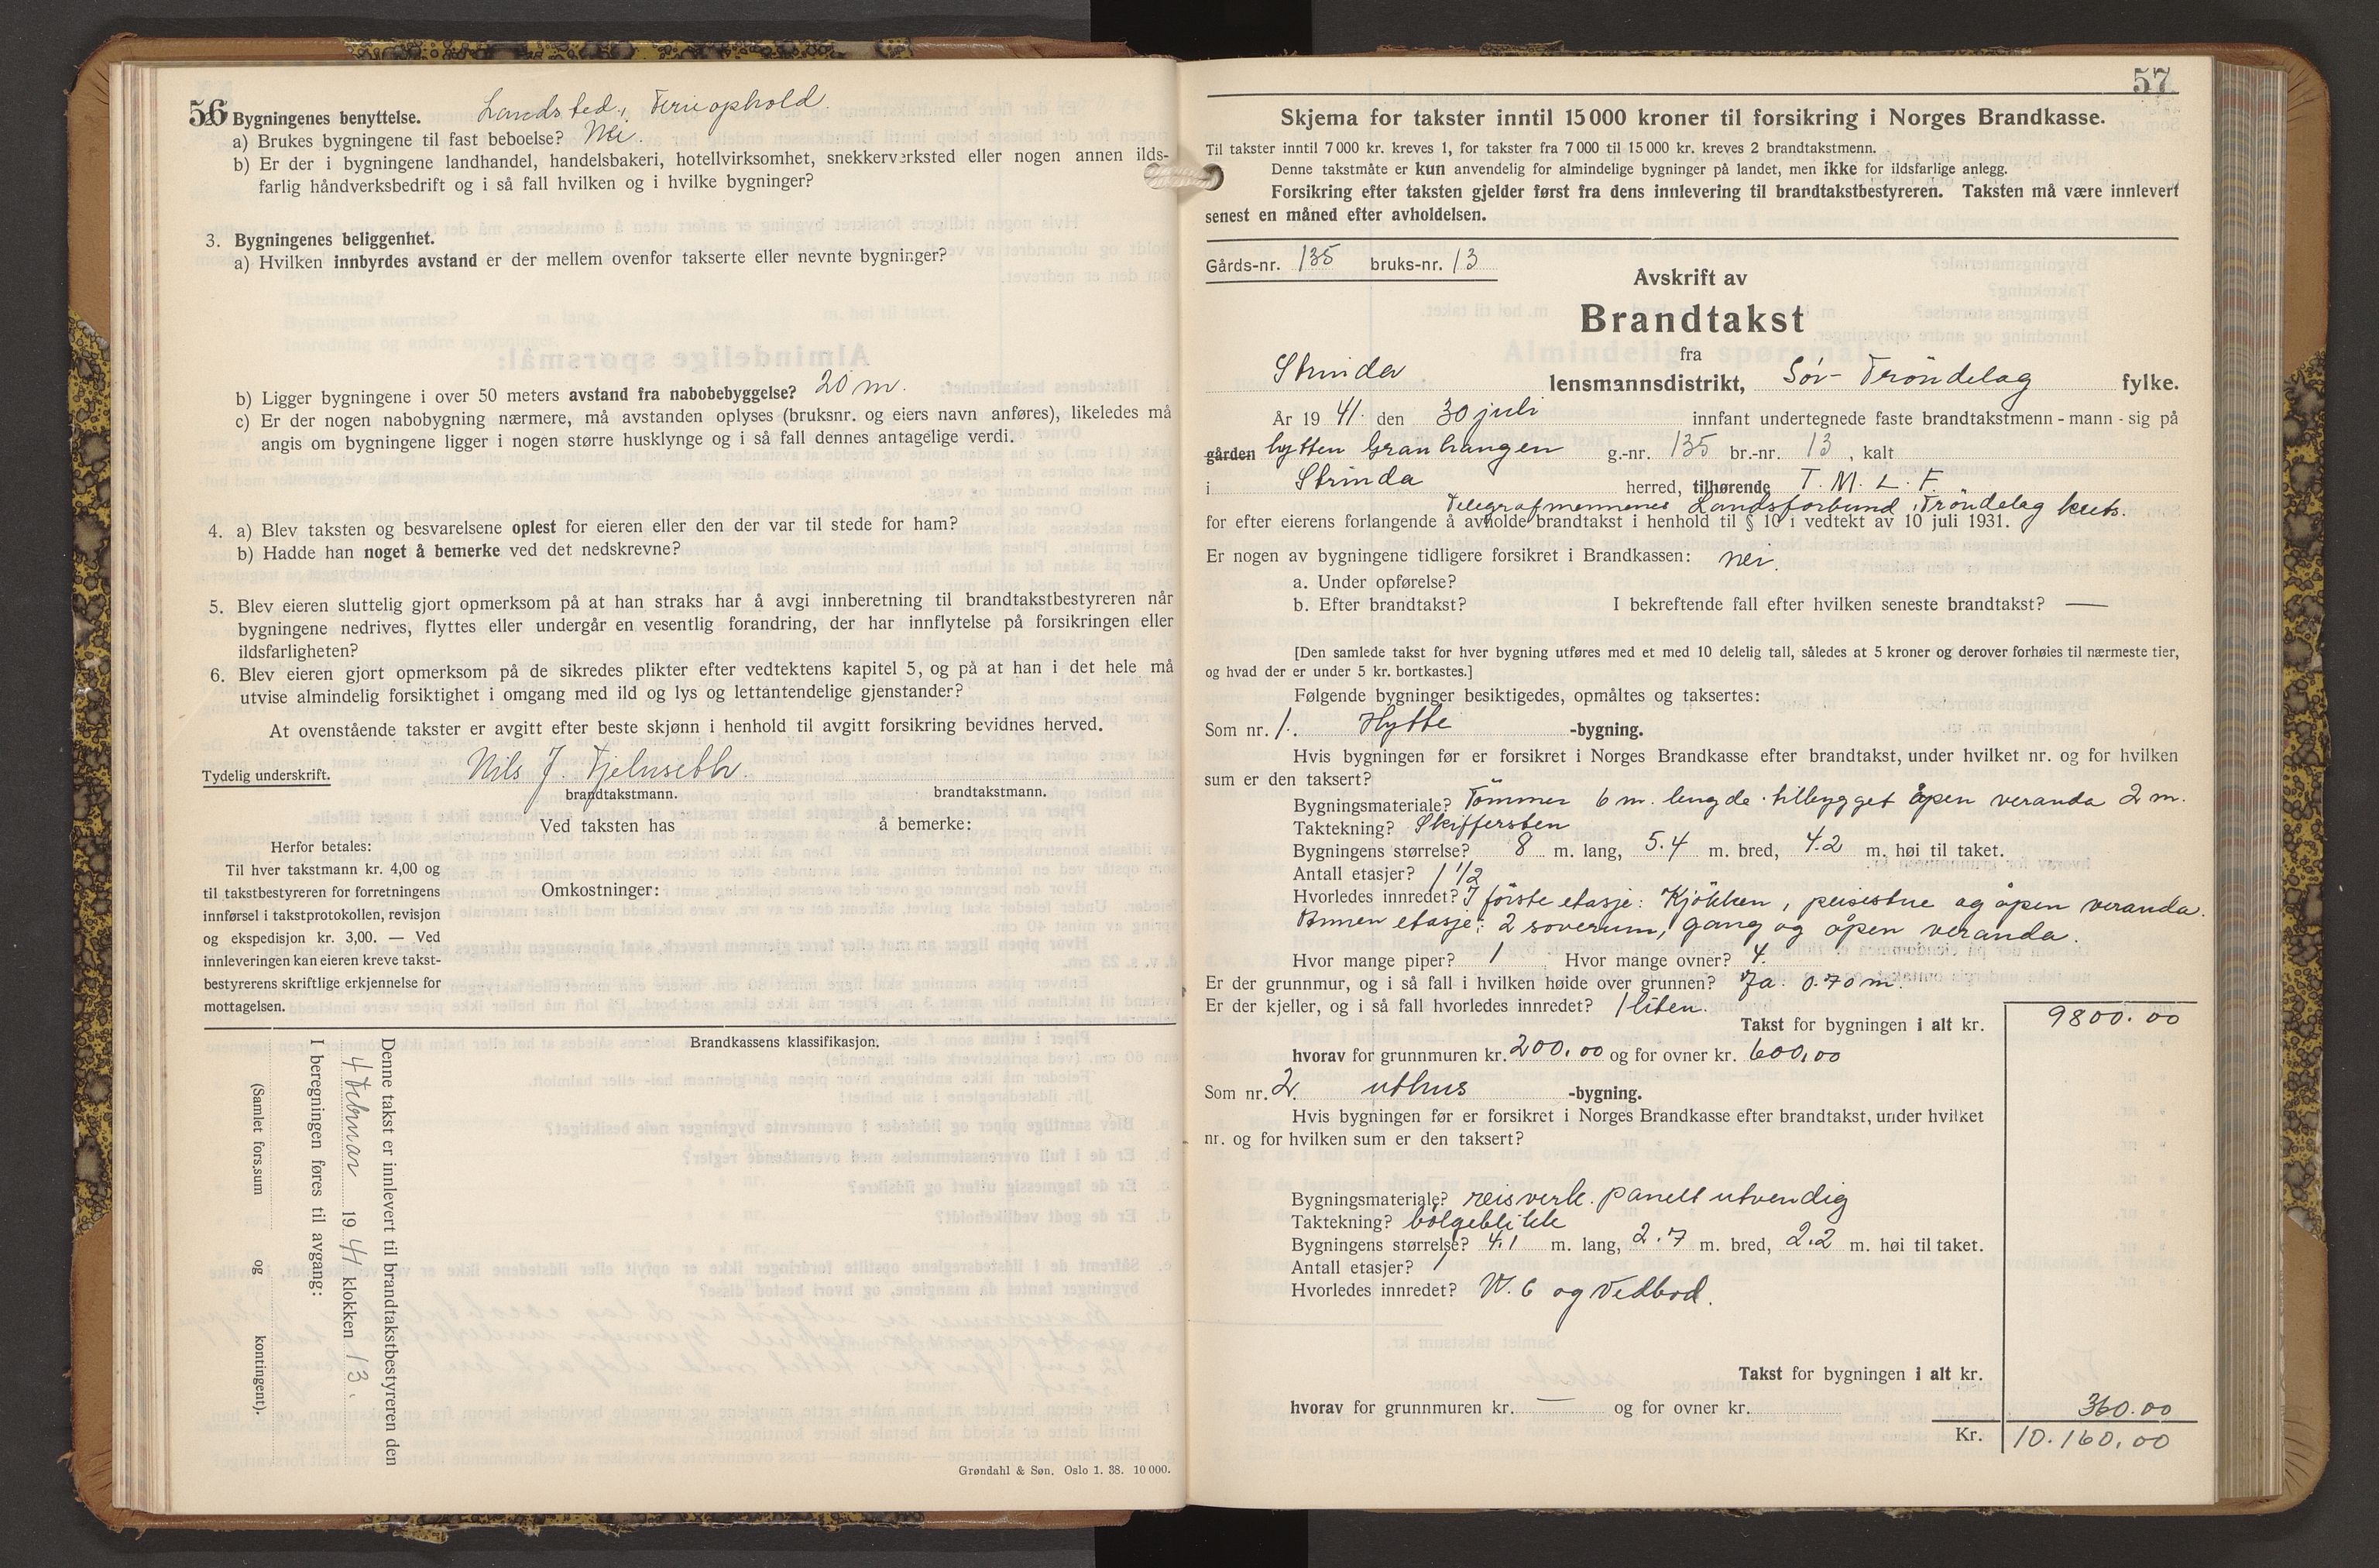 56
2. Bygningenes benyttelse. Landsted, Ferieophold.
a) Brukes bygningene til fast beboelse? Nei.
b) Er der i bygningene landhandel, handelsbakeri, hotellvirksomhet, snekkerverksted eller nogen annen ilds-
farlig håndverksbedrift og i så fall hvilken og i hvilke bygninger?
3. Bygningenes beliggenhet.
a) Hvilken innbyrdes avstand er der mellem ovenfor takserte eller nevnte bygninger?
b) Ligger bygningene i over 50 meters avstand fra nabobebyggelse? 20 m.
c) Er der nogen nabobygning nærmere, må avstanden oplyses (bruksnr. og eiers navn anføres), likeledes må
angis om bygningene ligger i nogen større husklynge og i så fall dennes antagelige verdi.
4. a) Blev taksten og besvarelsene oplest for eieren eller den der var til stede for ham?
b) Hadde han noget å bemerke ved det nedskrevne?
5. Blev eieren sluttelig gjort opmerksom på at han straks har å avgi innberetning til brandtakstbestyreren når
bygningene nedrives, flyttes eller undergår en vesentlig forandring, der har innflytelse på forsikringen eller
ildsfarligheten?
6. Blev eieren gjort opmerksom på de sikredes plikter efter vedtektens kapitel 5, og på at han i det hele må
utvise almindelig forsiktighet i omgang med ild og lys og lettantendelige gjenstander?
At ovenstående takster er avgitt efter beste skjønn i henhold til avgitt forsikring bevidnes herved.
Tydelig underskrift. Nils J. Fjelnseth
brandtakstmann. brandtakstmann.
Ved taksten has å bemerke:
Herfor betales:
Til hver takstmann kr. 4,00 og
til takstbestyreren for forretningens
innførsel i takstprotokollen, revisjon
og ekspedisjon kr. 3,00. — Ved
innleveringen kan eieren kreve takst-
bestyrerens skriftlige erkjennelse for
mottagelsen.
Omkostninger:
Brandkassens klassifikasjon.
Denne takst er innlevert til brandtakstbestyreren den
4 Februar 19 41 klokken 13.
I beregningen føres til avgang:
(Samlet fors.sum og kontingent).
Grøndahl & Søn, Oslo 1. 38. 10 000.
57
Skjema for takster inntil 15 000 kroner til forsikring i Norges Brandkasse.
Til takster inntil 7 000 kr. kreves 1, for takster fra 7 000 til 15 000 kr. kreves 2 brandtakstmenn.
Denne takstmåte er kun anvendelig for almindelige bygninger på landet, men ikke for ildsfarlige anlegg.
Forsikring efter taksten gjelder først fra dens innlevering til brandtakstbestyreren. Taksten må være innlevert
senest en måned efter avholdelsen.
Gårds-nr. 135 bruks-nr. 13
Avskrift av
Brandtakst
fra
Strinda lensmannsdistrikt, Sør-Tröndelag fylke.
År 19 41. den 30 juli innfant undertegnede faste brandtakstmenn - mann - sig på
gården hytten Granhaugen g.-nr. 135 br.-nr. 13, kalt
i Strinda herred, tilhørende T. M. L. F.
Telegrafmennenes Landsforbund, Tröndelag krets.
for efter eierens forlangende å avholde brandtakst i henhold til § 10 i vedtekt av 10 juli 1931.
Er nogen av bygningene tidligere forsikret i Brandkassen: nei.
a. Under opførelse?
b. Efter brandtakst? I bekreftende fall efter hvilken seneste brandtakst? —
[Den samlede takst for hver bygning utføres med et med 10 delelig tall, således at 5 kroner og derover forhøies til nærmeste tier,
og hvad der er under 5 kr. bortkastes.]
Følgende bygninger besiktigedes, opmåltes og taksertes:
Som nr. 1. Hytte -bygning.
Hvis bygningen før er forsikret i Norges Brandkasse efter brandtakst, under hvilket nr. og for hvilken
sum er den taksert?
Bygningsmateriale? Tömmer 6 m. lengde. tilbygget åpen veranda 2 m.
Taktekning? Skiffersten
Bygningens størrelse? 8 m. lang, 5.4 m. bred, 4.2 m. høi til taket.
Antall etasjer? 1 1/2
Hvorledes innredet? I förste etasje: Kjökken, peisestue og åpen veranda.
Annen etasje: 2 soverum, gang og åpen veranda.
Hvor mange piper? 1 Hvor mange ovner? 4.
Er der grunnmur, og i så fall i hvilken høide over grunnen? Ja. 0.70 m.
Er der kjeller, og i så fall hvorledes innredet? 1 liten.
Takst for bygningen i alt kr. 9800.00
hvorav for grunnmuren kr. 200.00 og for ovner kr. 600,00
Som nr. 2. uthus -bygning.
Hvis bygningen før er forsikret i Norges Brandkasse efter brandtakst, under hvilket
nr. og for hvilken sum er den taksert?
Bygningsmateriale? reisverk. panelt utvendig
Taktekning? bölgeblikk
Bygningens størrelse? 4.1 m. lang, 2.7 m. bred, 2.2 m. høi til taket.
Antall etasjer? 1
Hvorledes innredet? W. C og Vedbod.
Takst for bygningen i alt kr.
hvorav for grunnmuren kr. — og for ovner kr. 360.00
Kr. 10.160,00